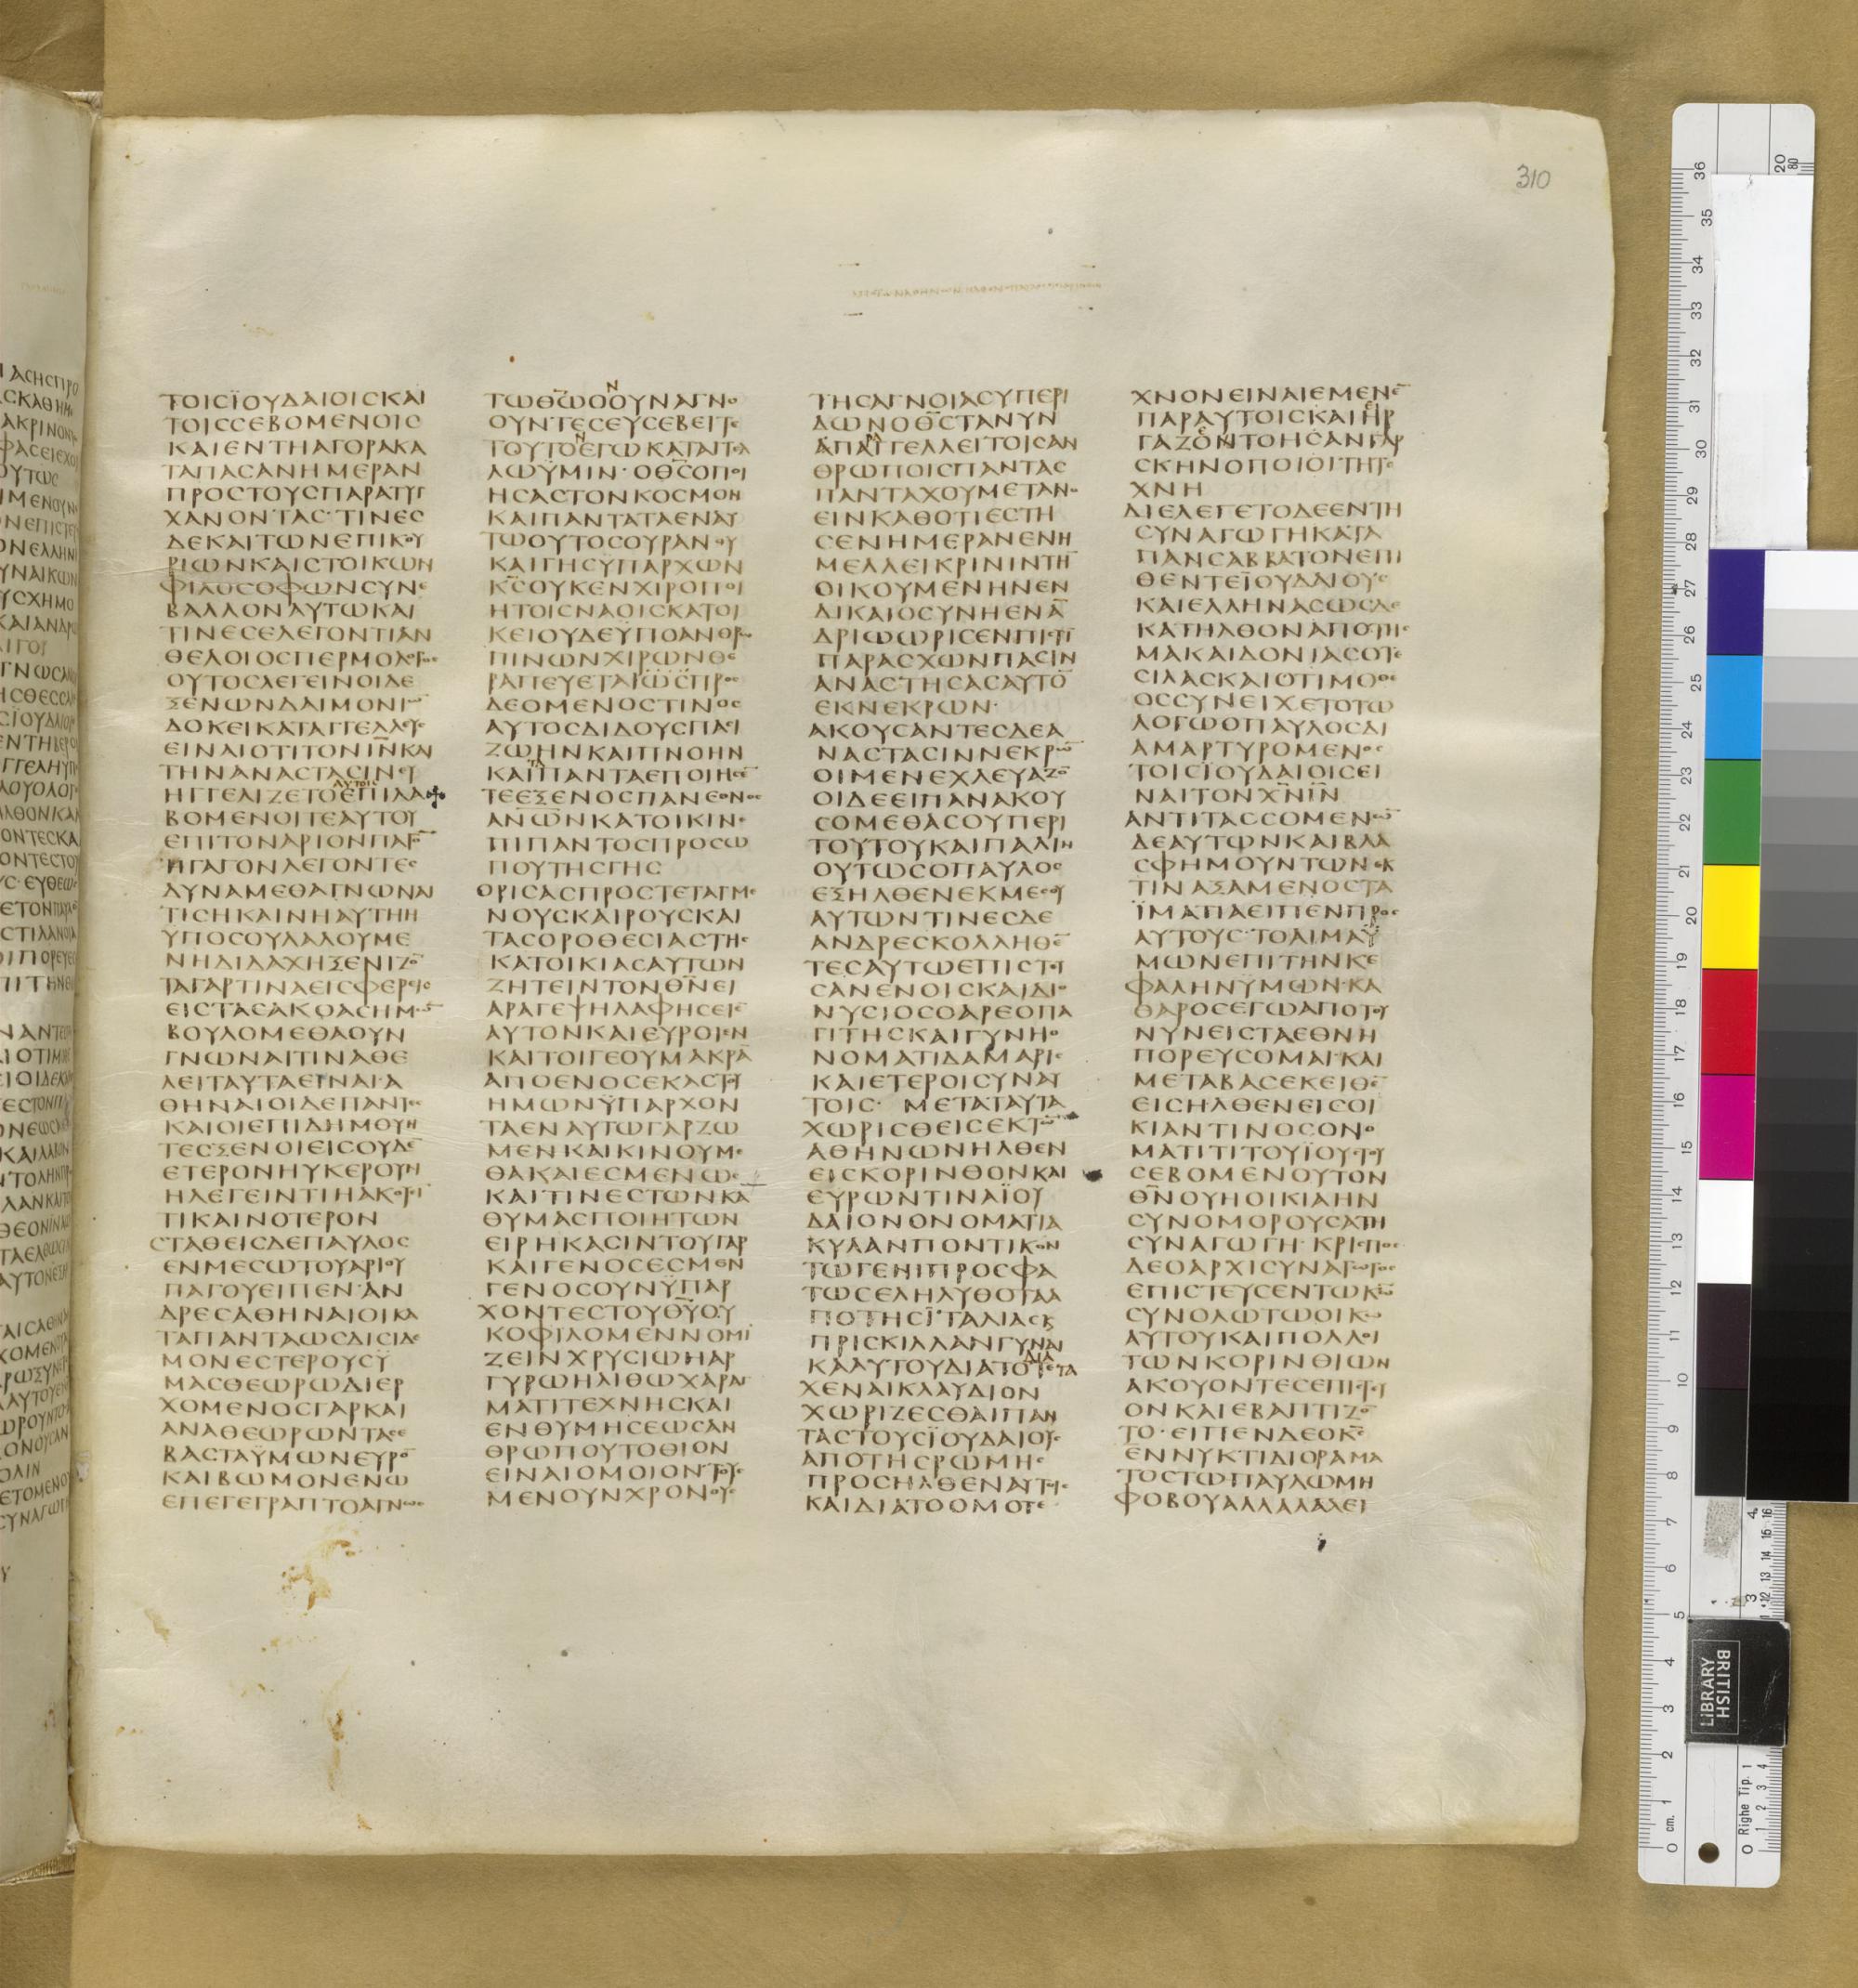 310
ΤΟΙϹΪΟΥΔΑΙΟΙϹΚΑΙ
ΤΟΙϹϹΕΒΟΜΕΝΟΙϹ
ΚΑΙΕΝΤΗΑΓΟΡΑΚΑ
ΤΑΠΑϹΑΝΗΜΕΡΑΝ
ΠΡΟϹΤΟΥϹΠΑΡΑΤΥΓ
ΧΑΝΟΝΤΑϹ·ΤΙΝΕϹ
ΔΕΚΑΙΤΩΝΕΠΙΚΟΥ
ΡΙΩΝΚΑΙϹΤΟΙΚΩΝ
ΦΙΛΟϹΟΦΩΝϹΥΝΕ
ΒΑΛΛΟΝΑΥΤΩΚΑΙ
ΤΙΝΕϹΕΛΕΓΟΝΤΙΑΝ
ΘΕΛΟΙΟϹΠΕΡΜΟΛΟΓΟϹ
ΟΥΤΟϹΛΕΓΕΙΝΟΙΔΕ
ΞΕΝΩΝΔΑΙΜΟΝΙΩ̅
ΔΟΚΕΙΚΑΤΑΓΓΕΛΕΥϹ
ΕΙΝΑΙΟΤΙΤΟΝΙ̅Ν̅ΚΑΙ
ΤΗΝΑΝΑϹΤΑϹΙΝΕΥ
ΗΓΓΕΛΙΖΕΤΟΑΥΤΟΙϹΕΠΙΛΑ
ΒΟΜΕΝΟΙΓΕΑΥΤΟΥ
ΕΠΙΤΟΝΑΡΙΟΝΠΑΓΟ̅
ΗΓΑΓΟΝΛΕΓΟΝΤΕϹ
ΔΥΝΑΜΕΘΑΓΝΩΝΑΙ
ΤΙϹΗΚΑΙΝΗΑΥΤΗΗ
ΥΠΟϹΟΥΛΑΛΟΥΜΕ
ΝΗΔΙΔΑΧΗΞΕΝΙΖΟ̅
ΤΑΓΑΡΤΙΝΑΕΙϹΦΕΡΕΙϹ
ΕΙϹΤΑϹΑΚΟΑϹΗΜΩ̅
ΒΟΥΛΟΜΕΘΑΟΥΝ
ΓΝΩΝΑΙΤΙΝΑΘΕ
ΛΕΙΤΑΥΤΑΕΙΝΑΙ·Α
ΘΗΝΑΙΟΙΔΕΠΑΝΤΕϹ
ΚΑΙΟΙΕΠΙΔΗΜΟΥΝ
ΤΕϹΞΕΝΟΙΕΙϹΟΥΔΕ̅
ΕΤΕΡΟΝΗΥΚΕΡΟΥΝ
ΗΛΕΓΕΙΝΤΙΗΑΚΟΥΕΙ̅
ΤΙΚΑΙΝΟΤΕΡΟΝ
ϹΤΑΘΕΙϹΔΕΠΑΥΛΟϹ
ΕΝΜΕϹΩΤΟΥΑΡΙΟΥ
ΠΑΓΟΥΕΙΠΕΝ·ΑΝ
ΔΡΕϹΑΘΗΝΑΙΟΙΚΑ
ΤΑΠΑΝΤΑΩϹΔΙϹΙΔΑΙ
ΜΟΝΕϹΤΕΡΟΥϹΫ
ΜΑϹΘΕΩΡΩΔΙΕΡ
ΧΟΜΕΝΟϹΓΑΡΚΑΙ
ΑΝΑΘΕΩΡΩΝΤΑϹΕ
ΒΑϹΤΑΫΜΩΝΕΥΡΟ̅
ΚΑΙΒΩΜΟΝΕΝΩ
ΕΠΕΓΕΓΡΑΠΤΟΑΓΝΩϹ
ΤΩΘ̅Ω̅ΟΝΟΥΝΑΓΝΟ
ΟΥΝΤΕϹΕΥϹΕΒΕΙΤΕ
ΤΟΥΤΟΝΕΓΩΚΑΤΑΓΓΕΛ
ΛΩΫΜΙΝ·ΟΘ̅Ϲ̅ΟΠΟΙ
ΗϹΑϹΤΟΝΚΟϹΜΟΝ
ΚΑΙΠΑΝΤΑΤΑΕΝΑΥ
ΤΩΟΥΤΟϹΟΥΡΑΝΟΥ
ΚΑΙΓΗϹΥΠΑΡΧΩΝ
Κ̅Ϲ̅ΟΥΚΕΝΧΙΡΟΠΟΙ
ΗΤΟΙϹΝΑΟΙϹΚΑΤΟΙ
ΚΕΙΟΥΔΕΥΠΟΑΝΘΡΩ
ΠΙΝΩΝΧΙΡΩΝΘΕ
ΡΑΠΕΥΕΤΑΙΩϹΠΡΟϹ
ΔΕΟΜΕΝΟϹΤΙΝΟϹ
ΑΥΤΟϹΔΙΔΟΥϹΠΑϹΙ
ΖΩΗΝΚΑΙΠΝΟΗΝ
ΚΑΙΤΑΠΑΝΤΑΕΠΟΙΗϹΕ̅
ΤΕΕΞΕΝΟϹΠΑΝΕΘΝΟϹ
ΑΝ̅Ω̅Ν̅ΚΑΤΟΙΚΙΝΕ
ΠΙΠΑΝΤΟϹΠΡΟϹΩ
ΠΟΥΤΗϹΓΗϹ
ΟΡΙϹΑϹΠΡΟϹΤΕΤΑΓΜΕ
ΝΟΥϹΚΑΙΡΟΥϹΚΑΙ
ΤΑϹΟΡΟΘΕϹΙΑϹΤΗϹ
ΚΑΤΟΙΚΙΑϹΑΥΤΩΝ
ΖΗΤΕΙΝΤΟΝΘ̅Ν̅ΕΙ
ΑΡΑΓΕΨΗΛΑΦΗϹΕΙΕ̅
ΑΥΤΟΝΚΑΙΕΥΡΟΙΕΝ
ΚΑΙΤΟΙΓΕΟΥΜΑΚΡΑ̅
ΑΠΟΕΝΟϹΕΚΑϹΤΟΥ
ΗΜΩΝΫΠΑΡΧΟΝ
ΤΑΕΝΑΥΤΩΓΑΡΖΩ
ΜΕΝΚΑΙΚΙΝΟΥΜΕ
ΘΑΚΑΙΕϹΜΕΝΩϹ
ΚΑΙΤΙΝΕϹΤΩΝΚΑ
ΘΥΜΑϹΠΟΙΗΤΩΝ
ΕΙΡΗΚΑϹΙΝΤΟΥΓΑΡ
ΚΑΙΓΕΝΟϹΕϹΜΕΝ
ΓΕΝΟϹΟΥΝΫΠΑΡ
ΧΟΝΤΕϹΤΟΥΘ̅Υ̅ΟΥ
ΚΟΦΙΛΟΜΕΝΝΟΜΙ
ΖΕΙΝΧΡΥϹΙΩΗΑΡ
ΓΥΡΩΗΛΙΘΩΧΑΡΑΓ
ΜΑΤΙΤΕΧΝΗϹΚΑΙ
ΕΝΘΥΜΗϹΕΩϹΑΝ
ΘΡΩΠΟΥΤΟΘΙΟΝ
ΕΙΝΑΙΟΜΟΙΟΝΤΟΥϹ
ΜΕΝΟΥΝΧΡΟΝΟΥϹ
ΤΗϹΑΓΝΟΙΑϹΥΠΕΡΙ
ΔΩΝΟΘ̅Ϲ̅ΤΑΝΥΝ
ΑΠΑΓΓΕΛΛΕΙΤΟΙϹΑΝ
ΘΡΩΠΟΙϹΠΑΝΤΑϹ
ΠΑΝΤΑΧΟΥΜΕΤΑΝΟ
ΕΙΝΚΑΘΟΤΙΕϹΤΗ
ϹΕΝΗΜΕΡΑΝΕΝΗ
ΜΕΛΛΕΙΚΡΙΝΙΝΤΗ̅
ΟΙΚΟΥΜΕΝΗΝΕΝ
ΔΙΚΑΙΟϹΥΝΗΕΝΑ̅
ΔΡΙΩΩΡΙϹΕΝΠΙϹΤΙ̅
ΠΑΡΑϹΧΩΝΠΑϹΙΝ
ΑΝΑϹΤΗϹΑϹΑΥΤΟ̅
ΕΚΝΕΚΡΩΝ·
ΑΚΟΥϹΑΝΤΕϹΔΕΑ
ΝΑϹΤΑϹΙΝΝΕΚΡΩ̅
ΟΙΜΕΝΕΧΛΕΥΑΖΟ̅
ΟΙΔΕΕΙΠΑΝΑΚΟΥ
ϹΟΜΕΘΑϹΟΥΠΕΡΙ
ΤΟΥΤΟΥΚΑΙΠΑΛΙΝ
ΟΥΤΩϹΟΠΑΥΛΟϹ
ΕΞΗΛΘΕΝΕΚΜΕϹΟΥ
ΑΥΤΩΝΤΙΝΕϹΔΕ
ΑΝΔΡΕϹΚΟΛΛΗΘΕ̅
ΤΕϹΑΥΤΩΕΠΙϹΤΕΥ
ϹΑΝΕΝΟΙϹΚΑΙΔΙΟ
ΝΥϹΙΟϹΟΑΡΕΟΠΑ
ΓΙΤΗϹΚΑΙΓΥΝΗΟ
ΝΟΜΑΤΙΔΑΜΑΡΙϹ
ΚΑΙΕΤΕΡΟΙϹΥΝΑΥ
ΤΟΙϹ· ΜΕΤΑΤΑΥΤΑ
ΧΩΡΙϹΘΕΙϹΕΚΤΩ̅
ΑΘΗΝΩΝΗΛΘΕΝ
ΕΙϹΚΟΡΙΝΘΟΝΚΑΙ
ΕΥΡΩΝΤΙΝΑΪΟΥ
ΔΑΙΟΝΟΝΟΜΑΤΙΑ
ΚΥΛΑΝΠΟΝΤΙΚΟΝ
ΤΩΓΕΝΙΠΡΟϹΦΑ
ΤΩϹΕΛΗΛΥΘΟΤΑΑ
ΠΟΤΗϹΪΤΑΛΙΑϹΚ
ΠΡΙϹΚΙΛΛΑΝΓΥΝΑΙ
ΚΑΑΥΤΟΥΔΙΑΤΟΤΕΤΑ
ΧΕΝΑΙΚΛΑΥΔΙΟΝ
ΧΩΡΙΖΕϹΘΑΙΠΑΝ
ΤΑϹΤΟΥϹΪΟΥΔΑΙΟΥϹ
ΑΠΟΤΗϹΡΩΜΗϹ
ΠΡΟϹΗΛΘΕΝΑΥΤΟΙϹ
ΚΑΙΔΙΑΤΟΟΜΟΤΕ
ΧΝΟΝΕΙΝΑΙΕΜΕΝΕ̅
ΠΑΡΑΥΤΟΙϹΚΑΙΗΡ
ΓΑΖΟΝΤΟΗϹΑΝΓΑΡ
ϹΚΗΝΟΠΟΙΟΙΤΗΤΕ
ΧΝΗ
ΔΙΕΛΕΓΕΤΟΔΕΕΝΤΗ
ϹΥΝΑΓΩΓΗΚΑΤΑ
ΠΑΝϹΑΒΒΑΤΟΝΕΠΙ
ΘΕΝΤΕΪΟΥΔΑΙΟΥϹ
ΚΑΙΕΛΛΗΝΑϹΩϹΔΕ
ΚΑΤΗΛΘΟΝΑΠΟΤΗϹ
ΜΑΚΑΙΔΟΝΙΑϹΟΤΕ
ϹΙΛΑϹΚΑΙΟΤΙΜΟΘΕΟϹ
ΟϹϹΥΝΕΙΧΕΤΟΤΩ
ΛΟΓΩΟΠΑΥΛΟϹΔΙ
ΑΜΑΡΤΥΡΟΜΕΝΟϹ
ΤΟΙϹΪΟΥΔΑΙΟΙϹΕΙ
ΝΑΙΤΟΝΧ̅Ν̅Ι̅Ν̅
ΑΝΤΙΤΑϹϹΟΜΕΝΩ̅
ΔΕΑΥΤΩΝΚΑΙΒΛΑ
ϹΦΗΜΟΥΝΤΩΝΕΚ
ΤΙΝΑΞΑΜΕΝΟϹΤΑ
ΪΜΑΤΙΑΕΙΠΕΝΠΡΟϹ
ΑΥΤΟΥϹ·ΤΟΑΙΜΑΫ
ΜΩΝΕΠΙΤΗΝΚΕ
ΦΑΛΗΝΫΜΩΝ·ΚΑ
ΘΑΡΟϹΕΓΩΑΠΟΤΟΥ
ΝΥΝΕΙϹΤΑΕΘΝΗ
ΠΟΡΕΥϹΟΜΑΙ·ΚΑΙ
ΜΕΤΑΒΑϹΕΚΕΙΘΕ̅
ΕΙϹΗΛΘΕΝΕΙϹΟΙ
ΚΙΑΝΤΙΝΟϹΟΝΟ
ΜΑΤΙΤΙΤΟΥΪΟΥϹΤΟΥ
ϹΕΒΟΜΕΝΟΥΤΟΝ
Θ̅Ν̅ΟΥΗΟΙΚΙΑΗΝ
ϹΥΝΟΜΟΡΟΥϹΑΤΗ
ϹΥΝΑΓΩΓΗ·ΚΡΙϹΠΟϹ
ΔΕΟΑΡΧΙϹΥΝΑΓΩΓΟϹ
ΕΠΙϹΤΕΥϹΕΝΤΩΚ̅Ω̅
ϹΥΝΟΛΩΤΩΟΙΚΩ
ΑΥΤΟΥΚΑΙΠΟΛΛΟΙ
ΤΩΝΚΟΡΙΝΘΙΩΝ
ΑΚΟΥΟΝΤΕϹΕΠΙϹΤΕΥ
ΟΝΚΑΙΕΒΑΠΤΙΖΟ̅
ΤΟ·ΕΙΠΕΝΔΕΟΚ̅Ϲ̅
ΕΝΝΥΚΤΙΔΙΟΡΑΜΑ
ΤΟϹΤΩΠΑΥΛΩΜΗ
ΦΟΒΟΥΑΛΛΑΛΑΛΕΙ
BRITISH
LIBRARY